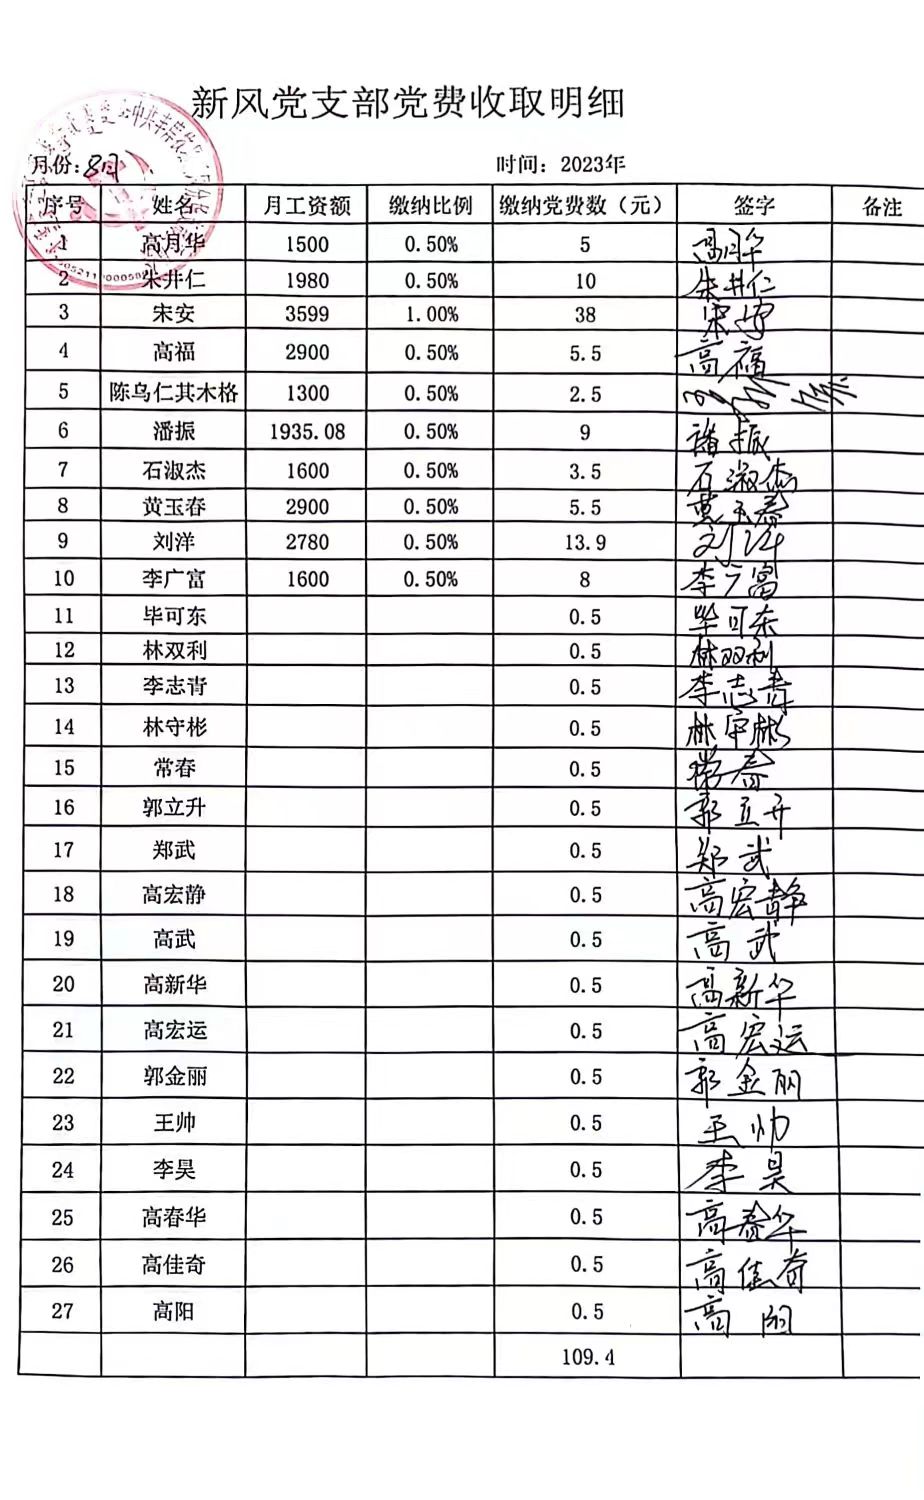 新风党支部党费收取明细
月份：8月 时间：2023年
序号 姓名 月工资额 缴纳比例 缴纳党费数（元） 签字 备注
1 高月华 1500 0.50% 5 高月华
2 朱井仁 1980 0.50% 10 朱井仁
3 宋安 3599 1.00% 38 宋安
4 高福 2900 0.50% 5.5 高福
5 陈乌仁其木格 1300 0.50% 2.5
6 潘振 1935.08 0.50% 9 潘振
7 石淑杰 1600 0.50% 3.5 石淑杰
8 黄玉春 2900 0.50% 5.5 黄玉春
9 刘洋 2780 0.50% 13.9 刘洋
10 李广富 1600 0.50% 8 李广富
11 毕可东 0.5 毕可东
12 林双利 0.5 林双利
13 李志青 0.5 李志青
14 林守彬 0.5 林守彬
15 常春 0.5 常春
16 郭立升 0.5 郭立升
17 郑武 0.5 郑武
18 高宏静 0.5 高宏静
19 高武 0.5 高武
20 高新华 0.5 高新华
21 高宏运 0.5 高宏运
22 郭金丽 0.5 郭金丽
23 王帅 0.5 王帅
24 李昊 0.5 李昊
25 高春华 0.5 高春华
26 高佳奇 0.5 高佳奇
27 高阳 0.5 高阳
109.4